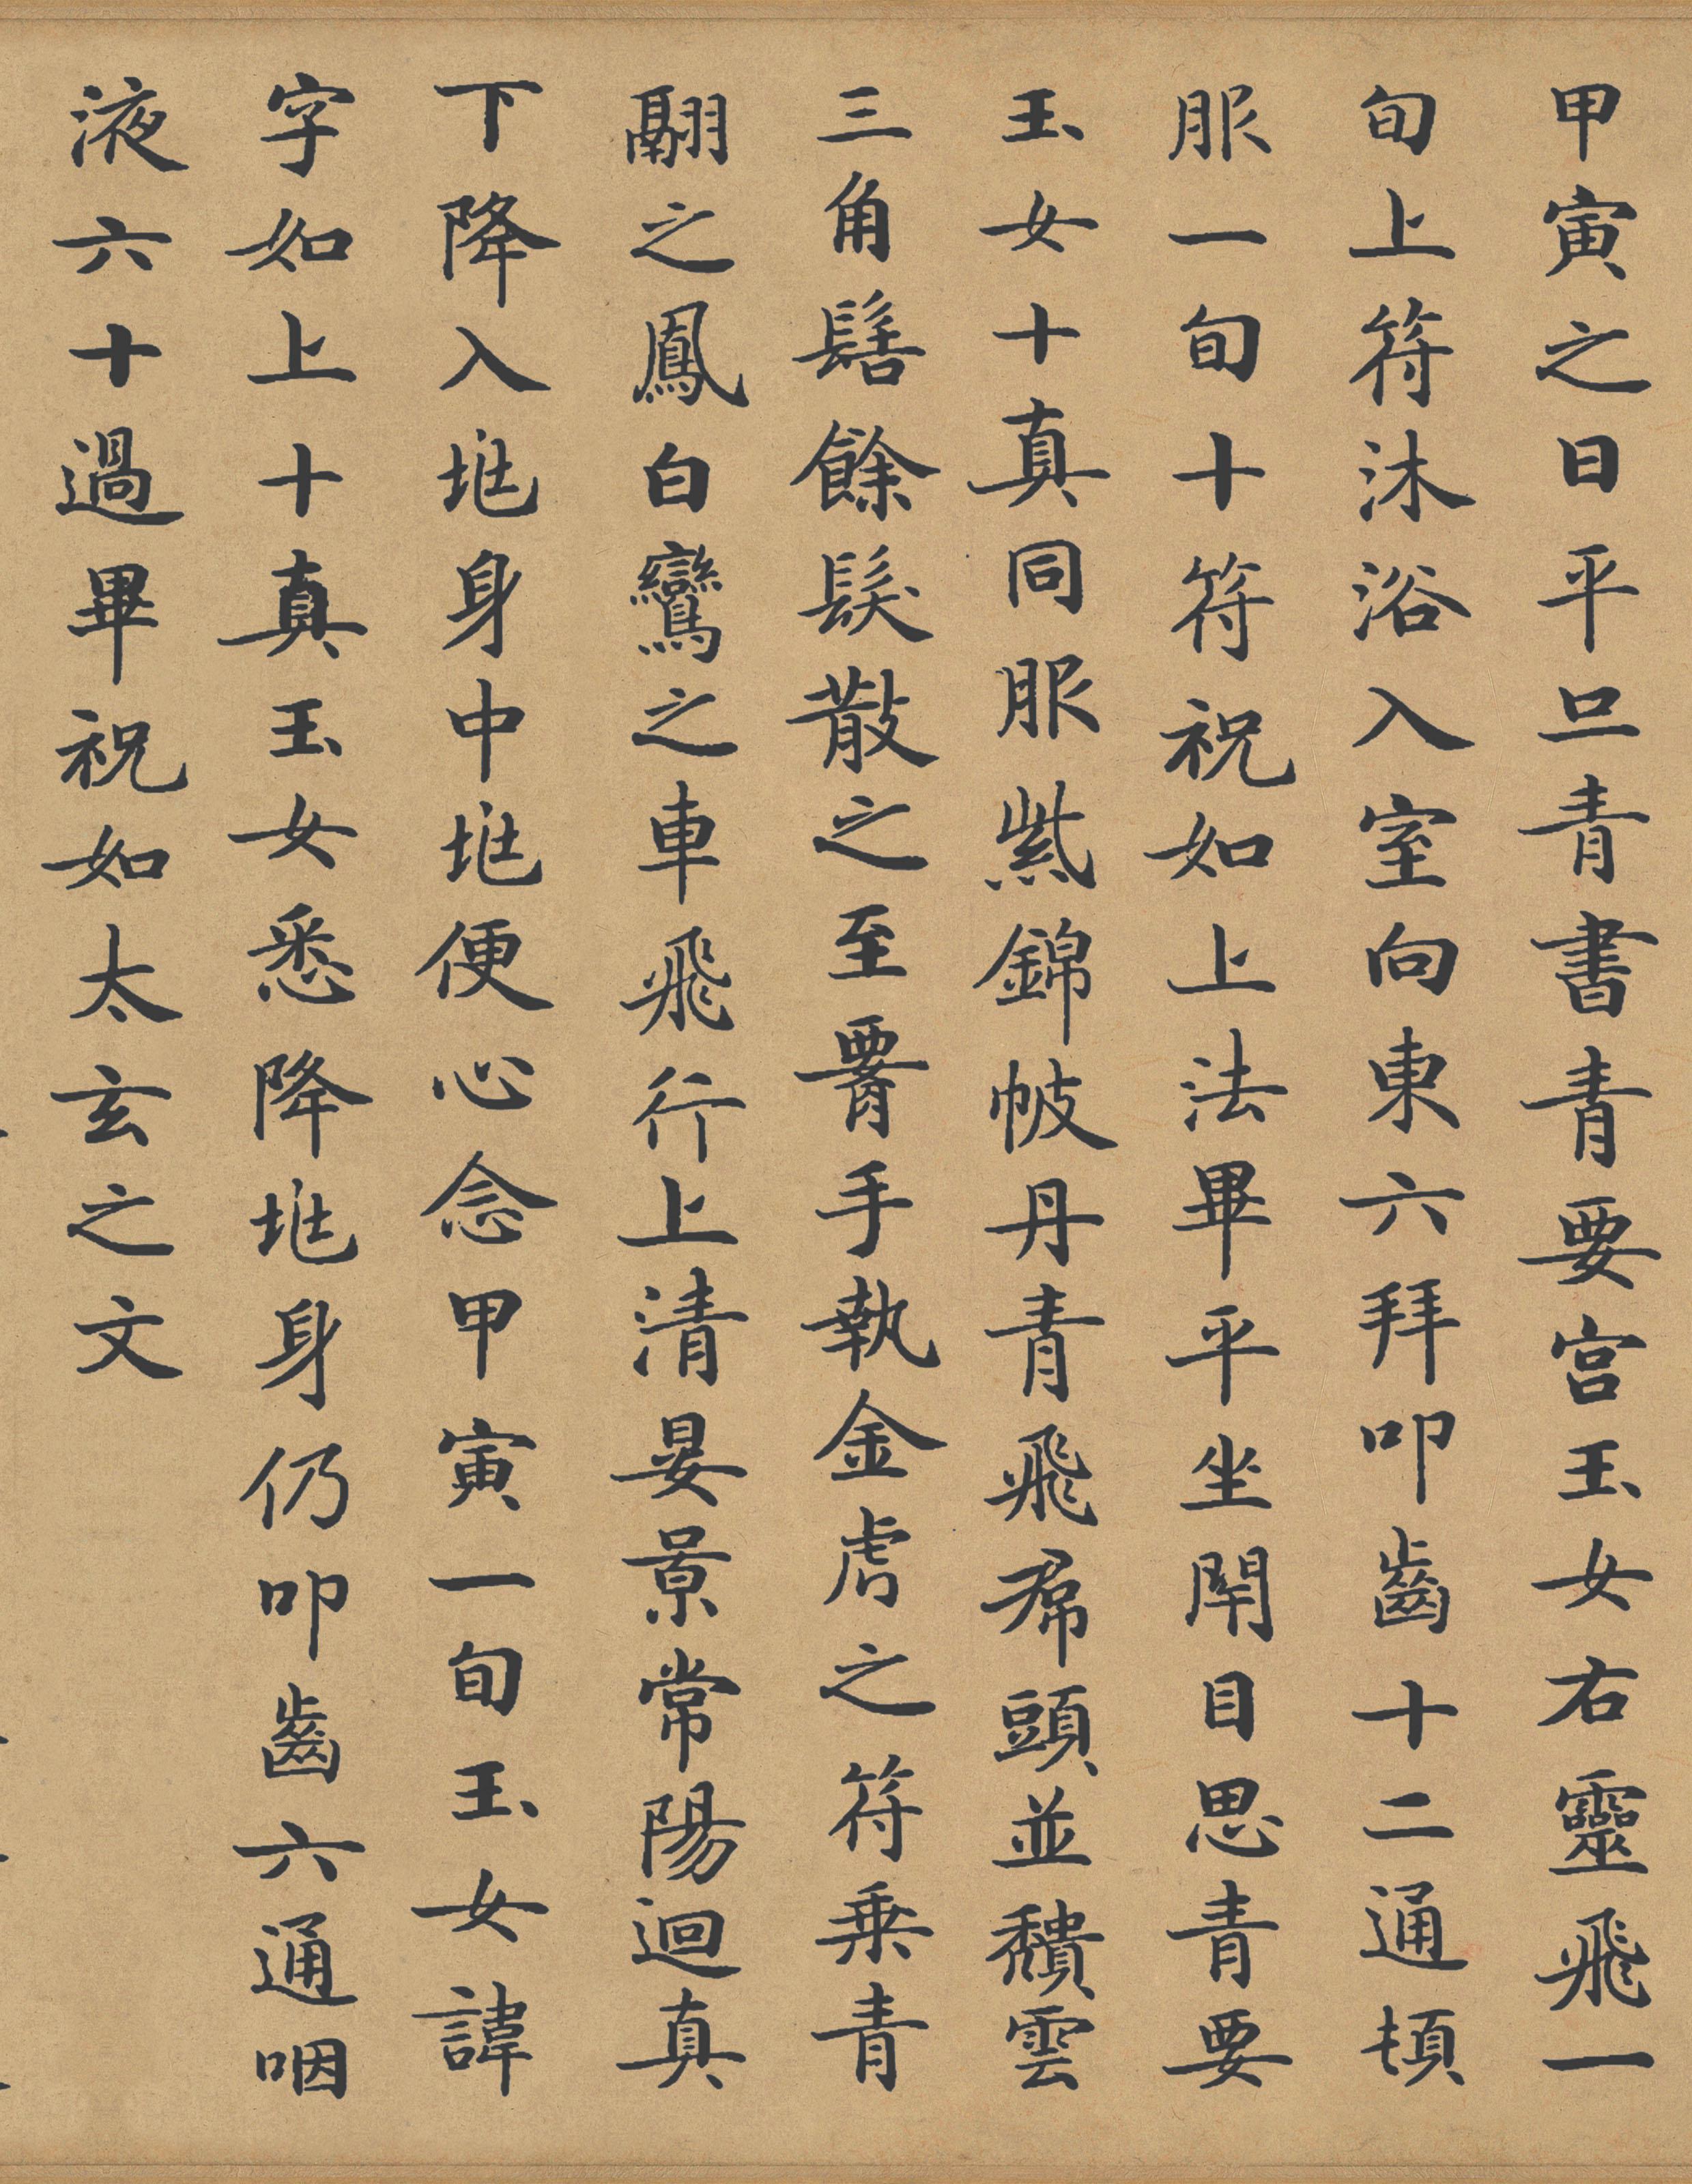 甲寅之日平旦青書青要宫玉女右靈飛一
旬上符沐浴入室向東六拜叩齒十二通頓
服一旬十符祝如上法畢平坐閇目思青要
玉女十真同服紫錦帔丹青飛帬頭並頽雲
三角髻餘髮散之至𦝫手執金虎之符乗青
翮之鳳白鸞之車飛行上清晏景常陽迴真
下降入𡉏身中𡉏便心念甲寅一旬玉女諱
字如上十真玉女悉降𡉏身仍叩齒六通咽
液六十過畢祝如太玄之文